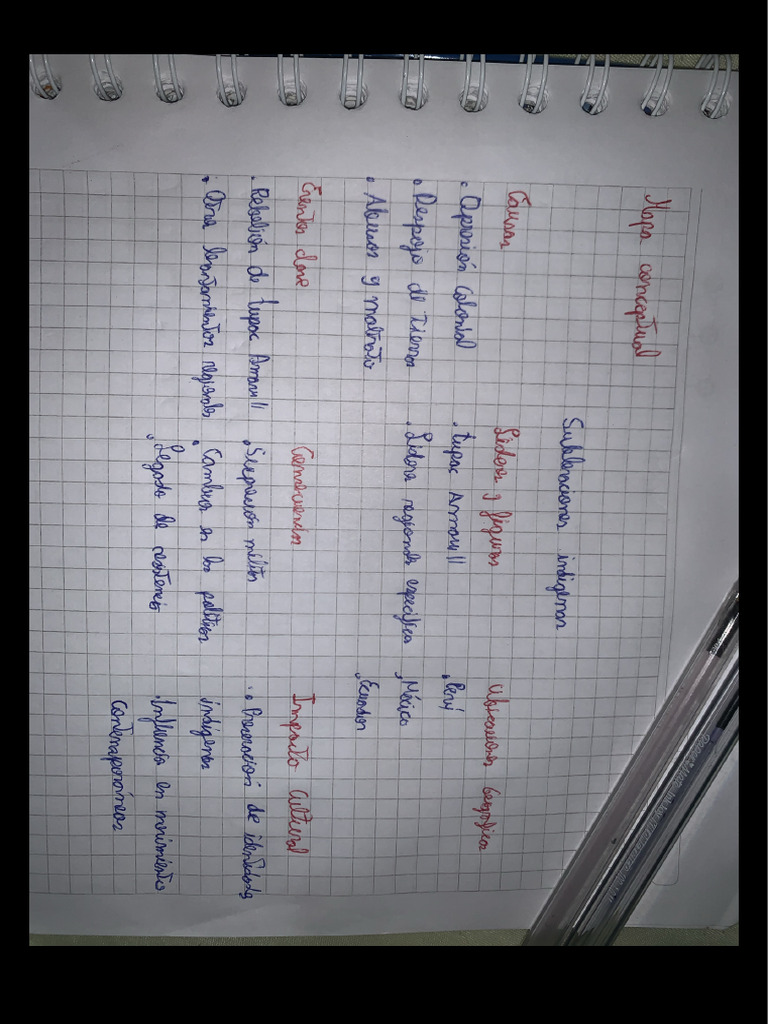 Mapa conceptual
Sublevaciones indigenas
Causas
• Opresión Colonial
• Despojo de tierras
• Abusos y maltrato
Lideres y figuras
• Tupac Amaru II
• Lideres regionales especifica
Ubicaciones Geograficas
• Perú
• México
• Ecuador
Eventos clave
• Rebelión de tupac Amaru II
• Otros levantamientos regionales
Consecuencias
• Supresión militar
• Cambios en las politicas
• Legado de resistencia
Impacto cultural
• Preservacion de identidades
indigenas
• Influencia en movimientos
Contemporáneos